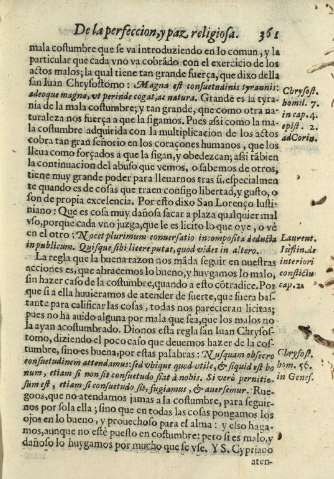 De la perfeccion, y paz religiosa. 361
mala costumbre que se va introduziendo en lo comun, y la
particular que cada vno va cobrãdo con el exercicio de los
actos malos; la qual tiene tan grande fuerça, que dixo della
san Iuan Chrysostomo: Magna est consuetudinis tyrannis:
adeoque magna, vt perinde cogat, ac natura. Grande es la tyra-
nia de la mala costumbre; y tan grande, que como otra na-
turaleza nos fuerça a que la sigamos. Pues assi como la ma-
la costumbre adquirida con la multiplicacion de los actos
cobra tan gran señorio en los coraçones humanos, que los
lleua como forçados a que la sigan, y obedezcan; assi tãbien
la continuacion del abuso que vemos, o sabemos de otros,
tiene muy grande poder para lleuarnos tras si, especialmen-
te quando es de cosas que traen consigo libertad, y gusto, o
son de propia excelencia. Por esto dixo San Lorenço Iusti-
niano: Que es cosa muy dañosa sacar a plaça qualquier mal
vso, porque cada vno juzga, que le es licito lo que oye, o vè
en el otro: Nocet plurimum conuersatio incomposita deducta
in publicum. Quisque sibi licere putat, quod videt in altero.
La regla que la buena razon nos máda seguir en nuestras
acciones es, que abracemos lo bueno, y huygamos lo malo,
sin hazer caso de la costumbre, quando a esto cõtradice. Por
que si a ella huuieramos de atender de suerte, que fuera bas-
tante para calificar las cosas, todas nos parecieran licitas;
pues no ha auido alguna por mala que sea, que los malos no
la ayan acostumbrado. Dionos esta regla san Iuan Chrysos-
tomo, diziendo el poco caso que deuemos hazer de la cos-
tumbre, sino es buena, por estas palabras: Nusquam obsecro
consuetudinem attendamus: sed vbique quod vtile, & siquid est bo
num, etiam si non sit consuetudo fiat a nobis. Si verò pernitio-
sum est, etiam si consuetudo sit, fugiamus, & auersemur. Rue-
goos, que no atendamos jamas a la costumbre, para seguir-
nos por sola ella; sino que en todas las cosas pongamos los
ojos en lo bueno, y prouechoso para el alma: y esso haga-
mos, aunque no estè puesto en costumbre: pero si es malo, y
dañoso lo huygamos por mucho que se vse. Y S. Cypriano
aten-
Chrysost.
homil. 7.
in cap. 4.
epist. 2.
ad Corin.
Laurent.
Iustin. de
interiori
conflictu
cap. 21
Chrysost.
hom. 56.
in Genes.